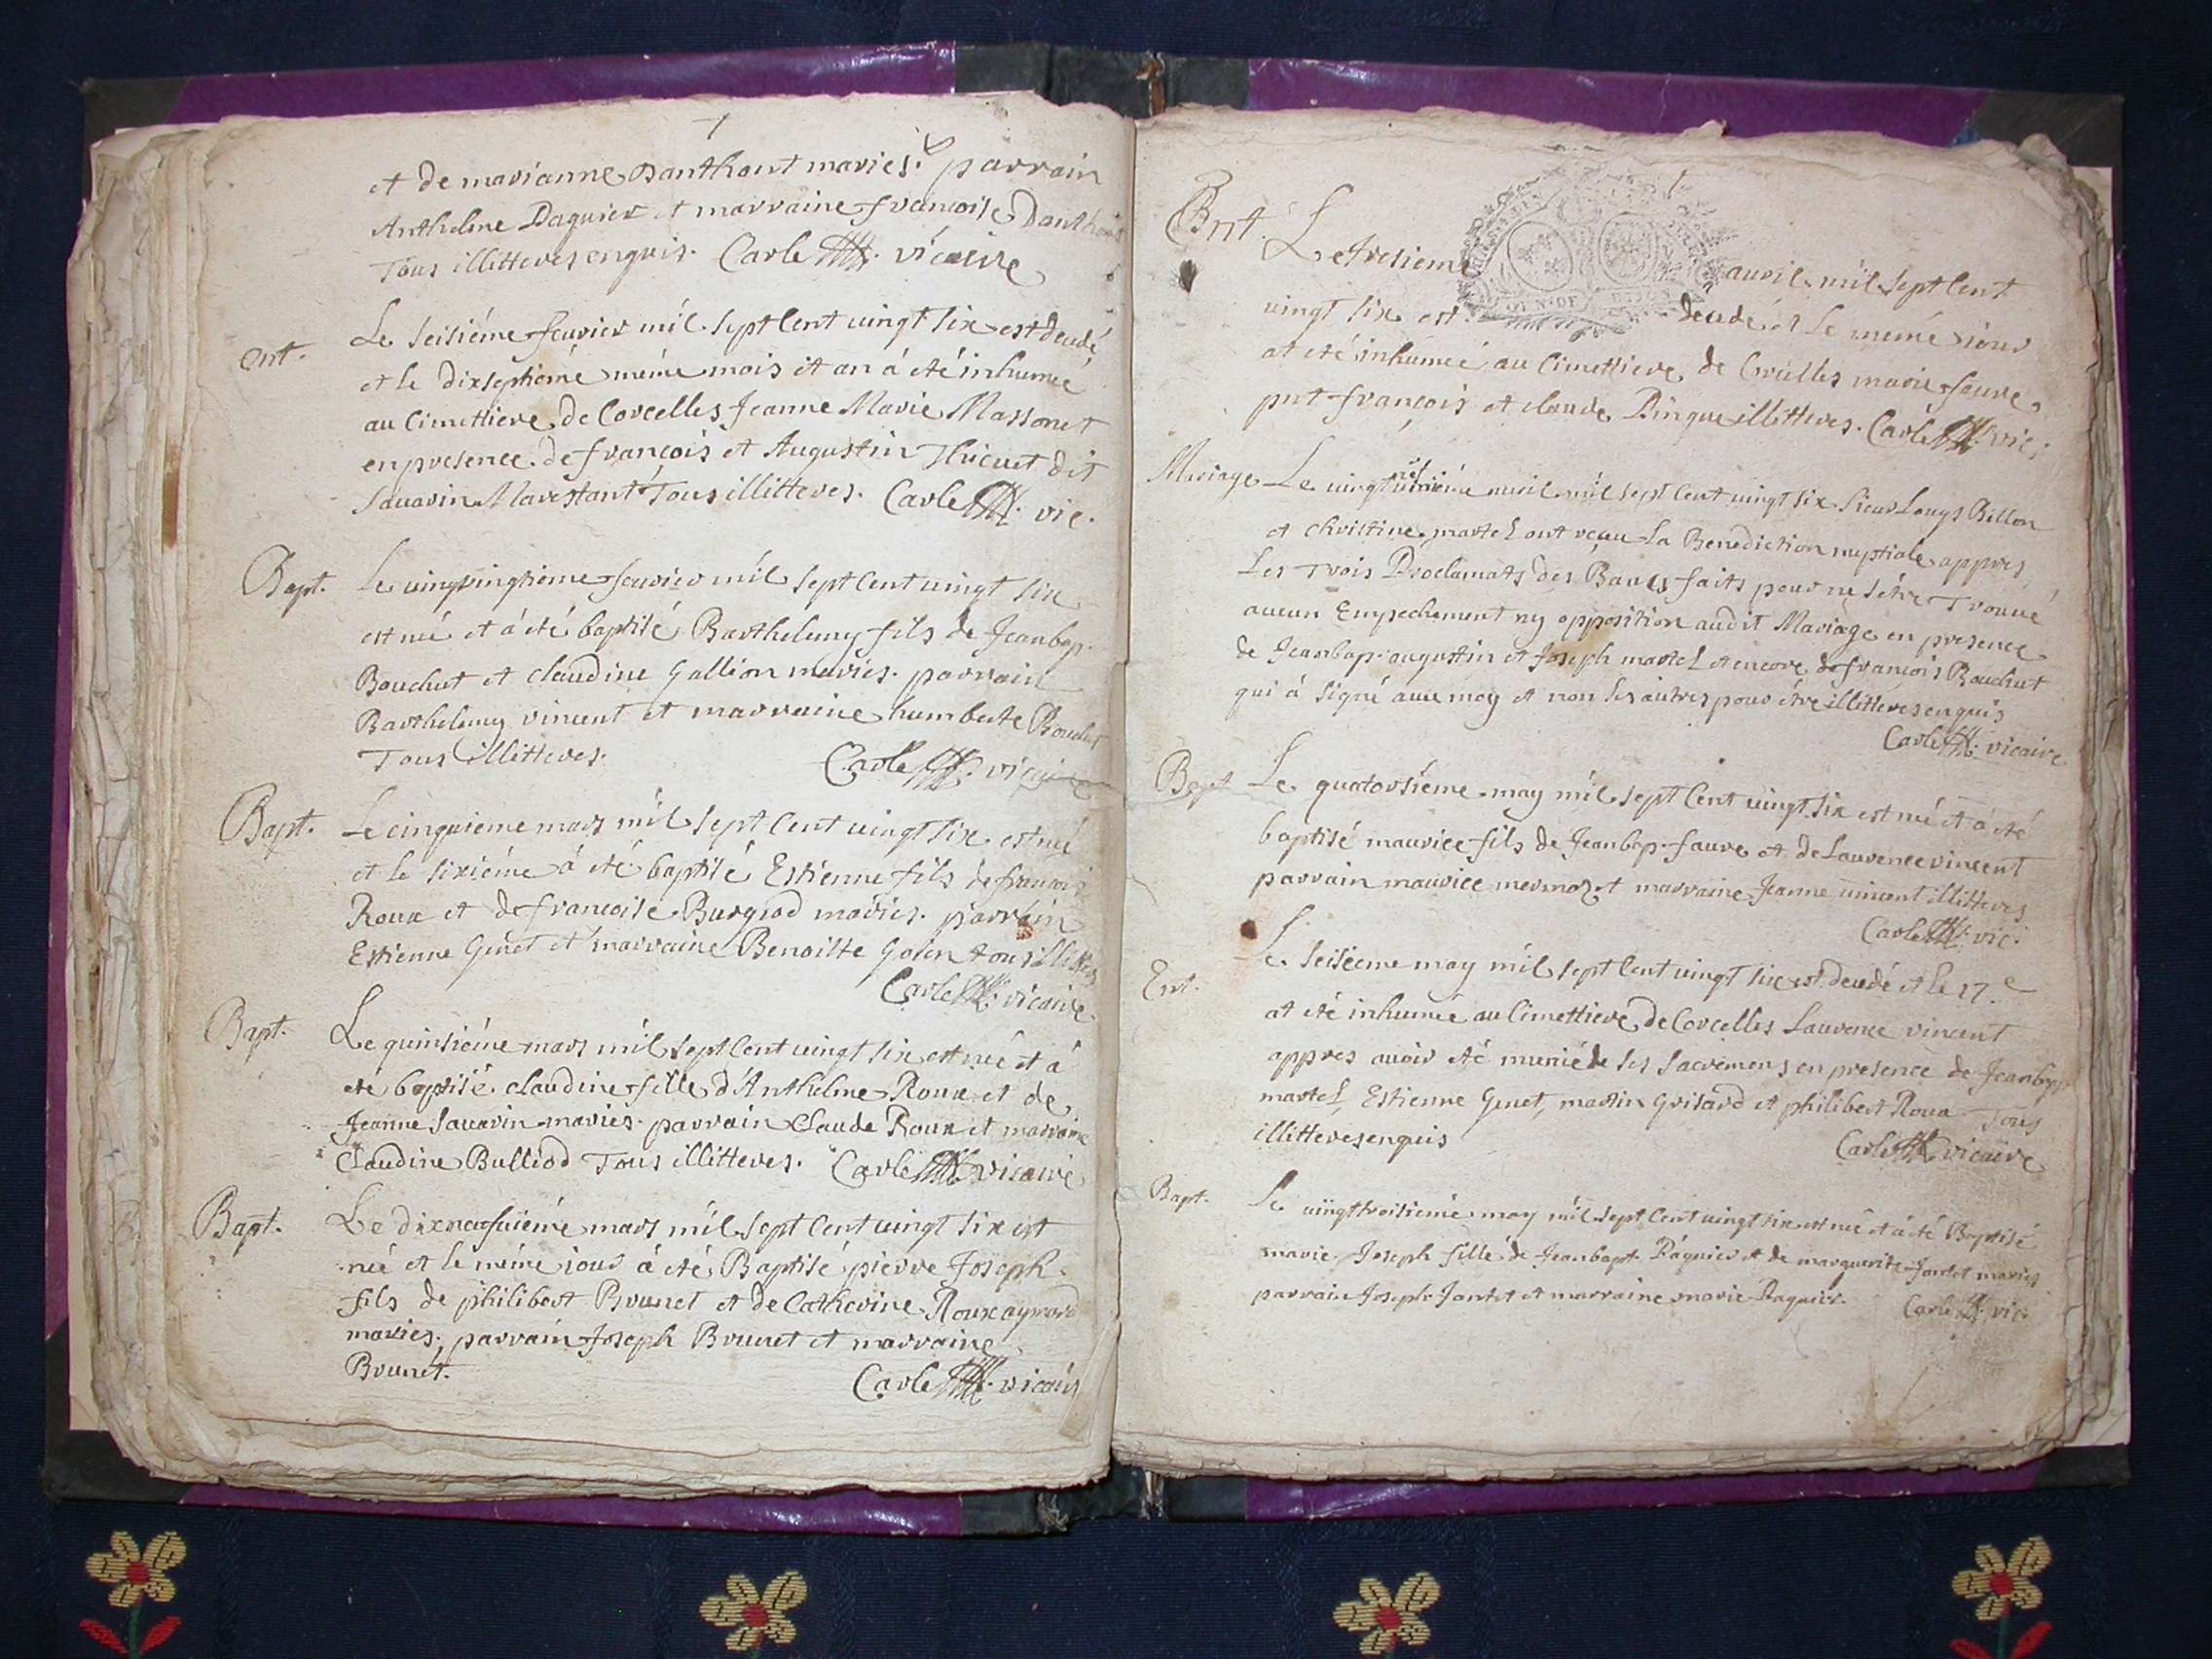 et de marianne Danthont mariés. parrain
Anthelme Daguier et marraine francoise
Tous illitteres enquis. Carle vicaire
ent.
Le seisiéme feuvier mil sept cent uingt six est decedé
et le dixseptiémé méme mois et an á eté inhumeé
au Cimettiere de Corcelles Jeanne Marie Massonet
en presence de francois et Augustin Thicuet dit
Sauarin Marestant Tous illitteres. Carle vic.
Bapt.
Le feuvier mil sept cent uingt six
est né et á eté baptisé Barthelemy fils de Jeanbap.
Bouchut et claudine Gallion mariés. parrain
Barthelemy vincent et marraine humberte Bouchut
Tous illitteres. Carle vicaire
Bapt.
Le cinquieme mars mil sept cent uingt six est né
et le sixiéme á eté baptisé Estienne fils de francois
Roux et de francoise Burgiod mariés. parrain
Estienne Genet et marraine Benoitte tous
Carle vicaire
Bapt.
Le quinsiéme mars mil sept cent uingt six est né et á
ete baptisé claudine fille d'Anthelme Roux et de
Jeanne Sauarin mariés. parrain Claude Roux et marraine
Claudine Bulliod Tous illitteres. Carle vicaire
Bapt.
Le mars mil sept cent uingt six est
né et le méme iour á eté Baptisé pierre Joseph
fils de philibert Brunet et de Catherine Roux aymard
mariés, parrain Joseph Brunet et marraine
Brunet. Carle vicair
Ent.
Le tresieme auril mil sept cent
uingt six est decedé et le méme iour
at eté inhumeé au Cimettiere de marie faure
pnt françois et claude Dingue illitteres. Carle vic.
Mariage
Le auril mil sept cent uingt six sieur Louys Billon
et christine martel ont reçeu la Benediction nuptiale appres
Les Trois Proclamats des Bancs faits pour ne s'étre Trouué
aucun Empechement ny opposition audit Mariage en presence
de Jeanbap. augustin et Joseph martel et encore de francois Bouchut
qui á signé auec moy et non les autres pour étre illitteres enquis
Carle vicaire
Bapt
Le quatorsiéme may mil sept cent uingt six est né et á eté
baptisé maurice fils de Jeanbap. faure et de Laurence vincent
parrain maurice mermoz et marraine Jeanne uincent illitteres
Carle vic.
Ent.
Le seiseeme may mil sept cent uingt six est decedé et le 17.e
at eté inhumée au Cimettiere de Corcelles Laurence vincent
appres auoir eté munié de ses sacremens en presence de Jeanbap.
martel, Estienne Genet, martin Grisard et philibert Roux Tous
illitteres enquis Carle vicaire
Bapt.
Le uingttroisiéme may mil sept cent uingt six est né et á eté Baptisé
marie Joseph fille de Jeanbapt. Daguier et de marguerite Jantet mariés
parrain Joseph Jantet et marraine marie Daguier. Carle vic.